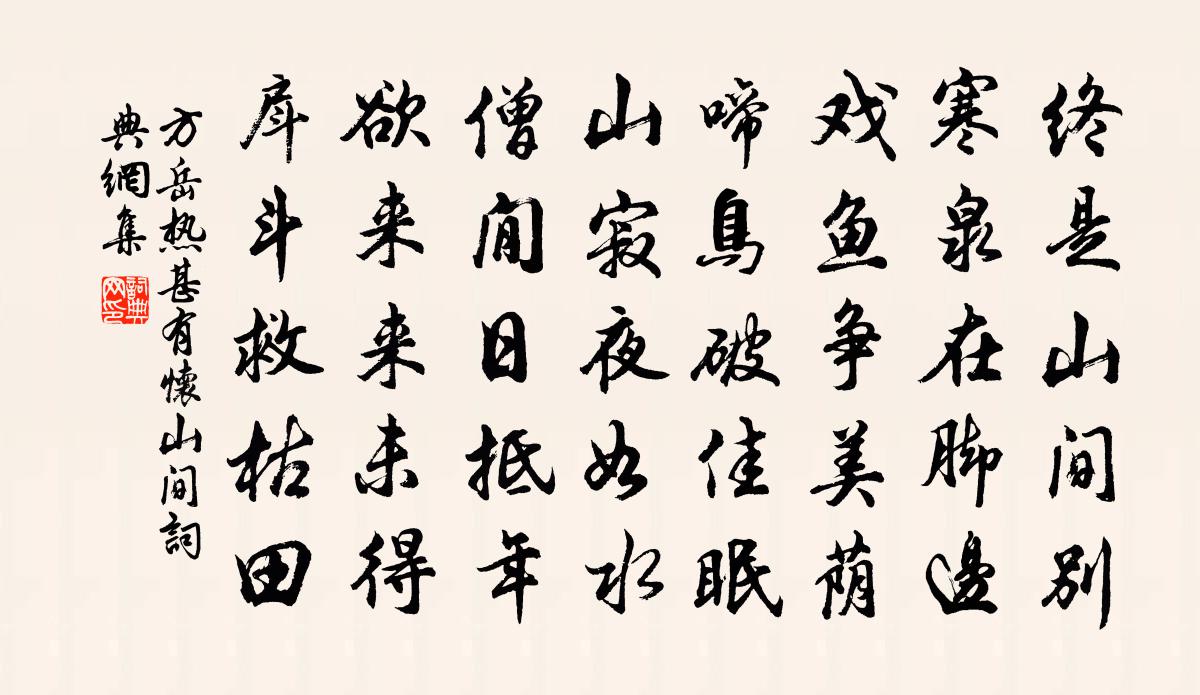 终是山间别
寒泉在脚邊
戏鱼争美荫
啼鳥破佳眠
山寂夜如水
僧閒日抵年
欲来来未得
戽斗救枯田
方岳热甚有懷山间詞
典網集
詞典网印